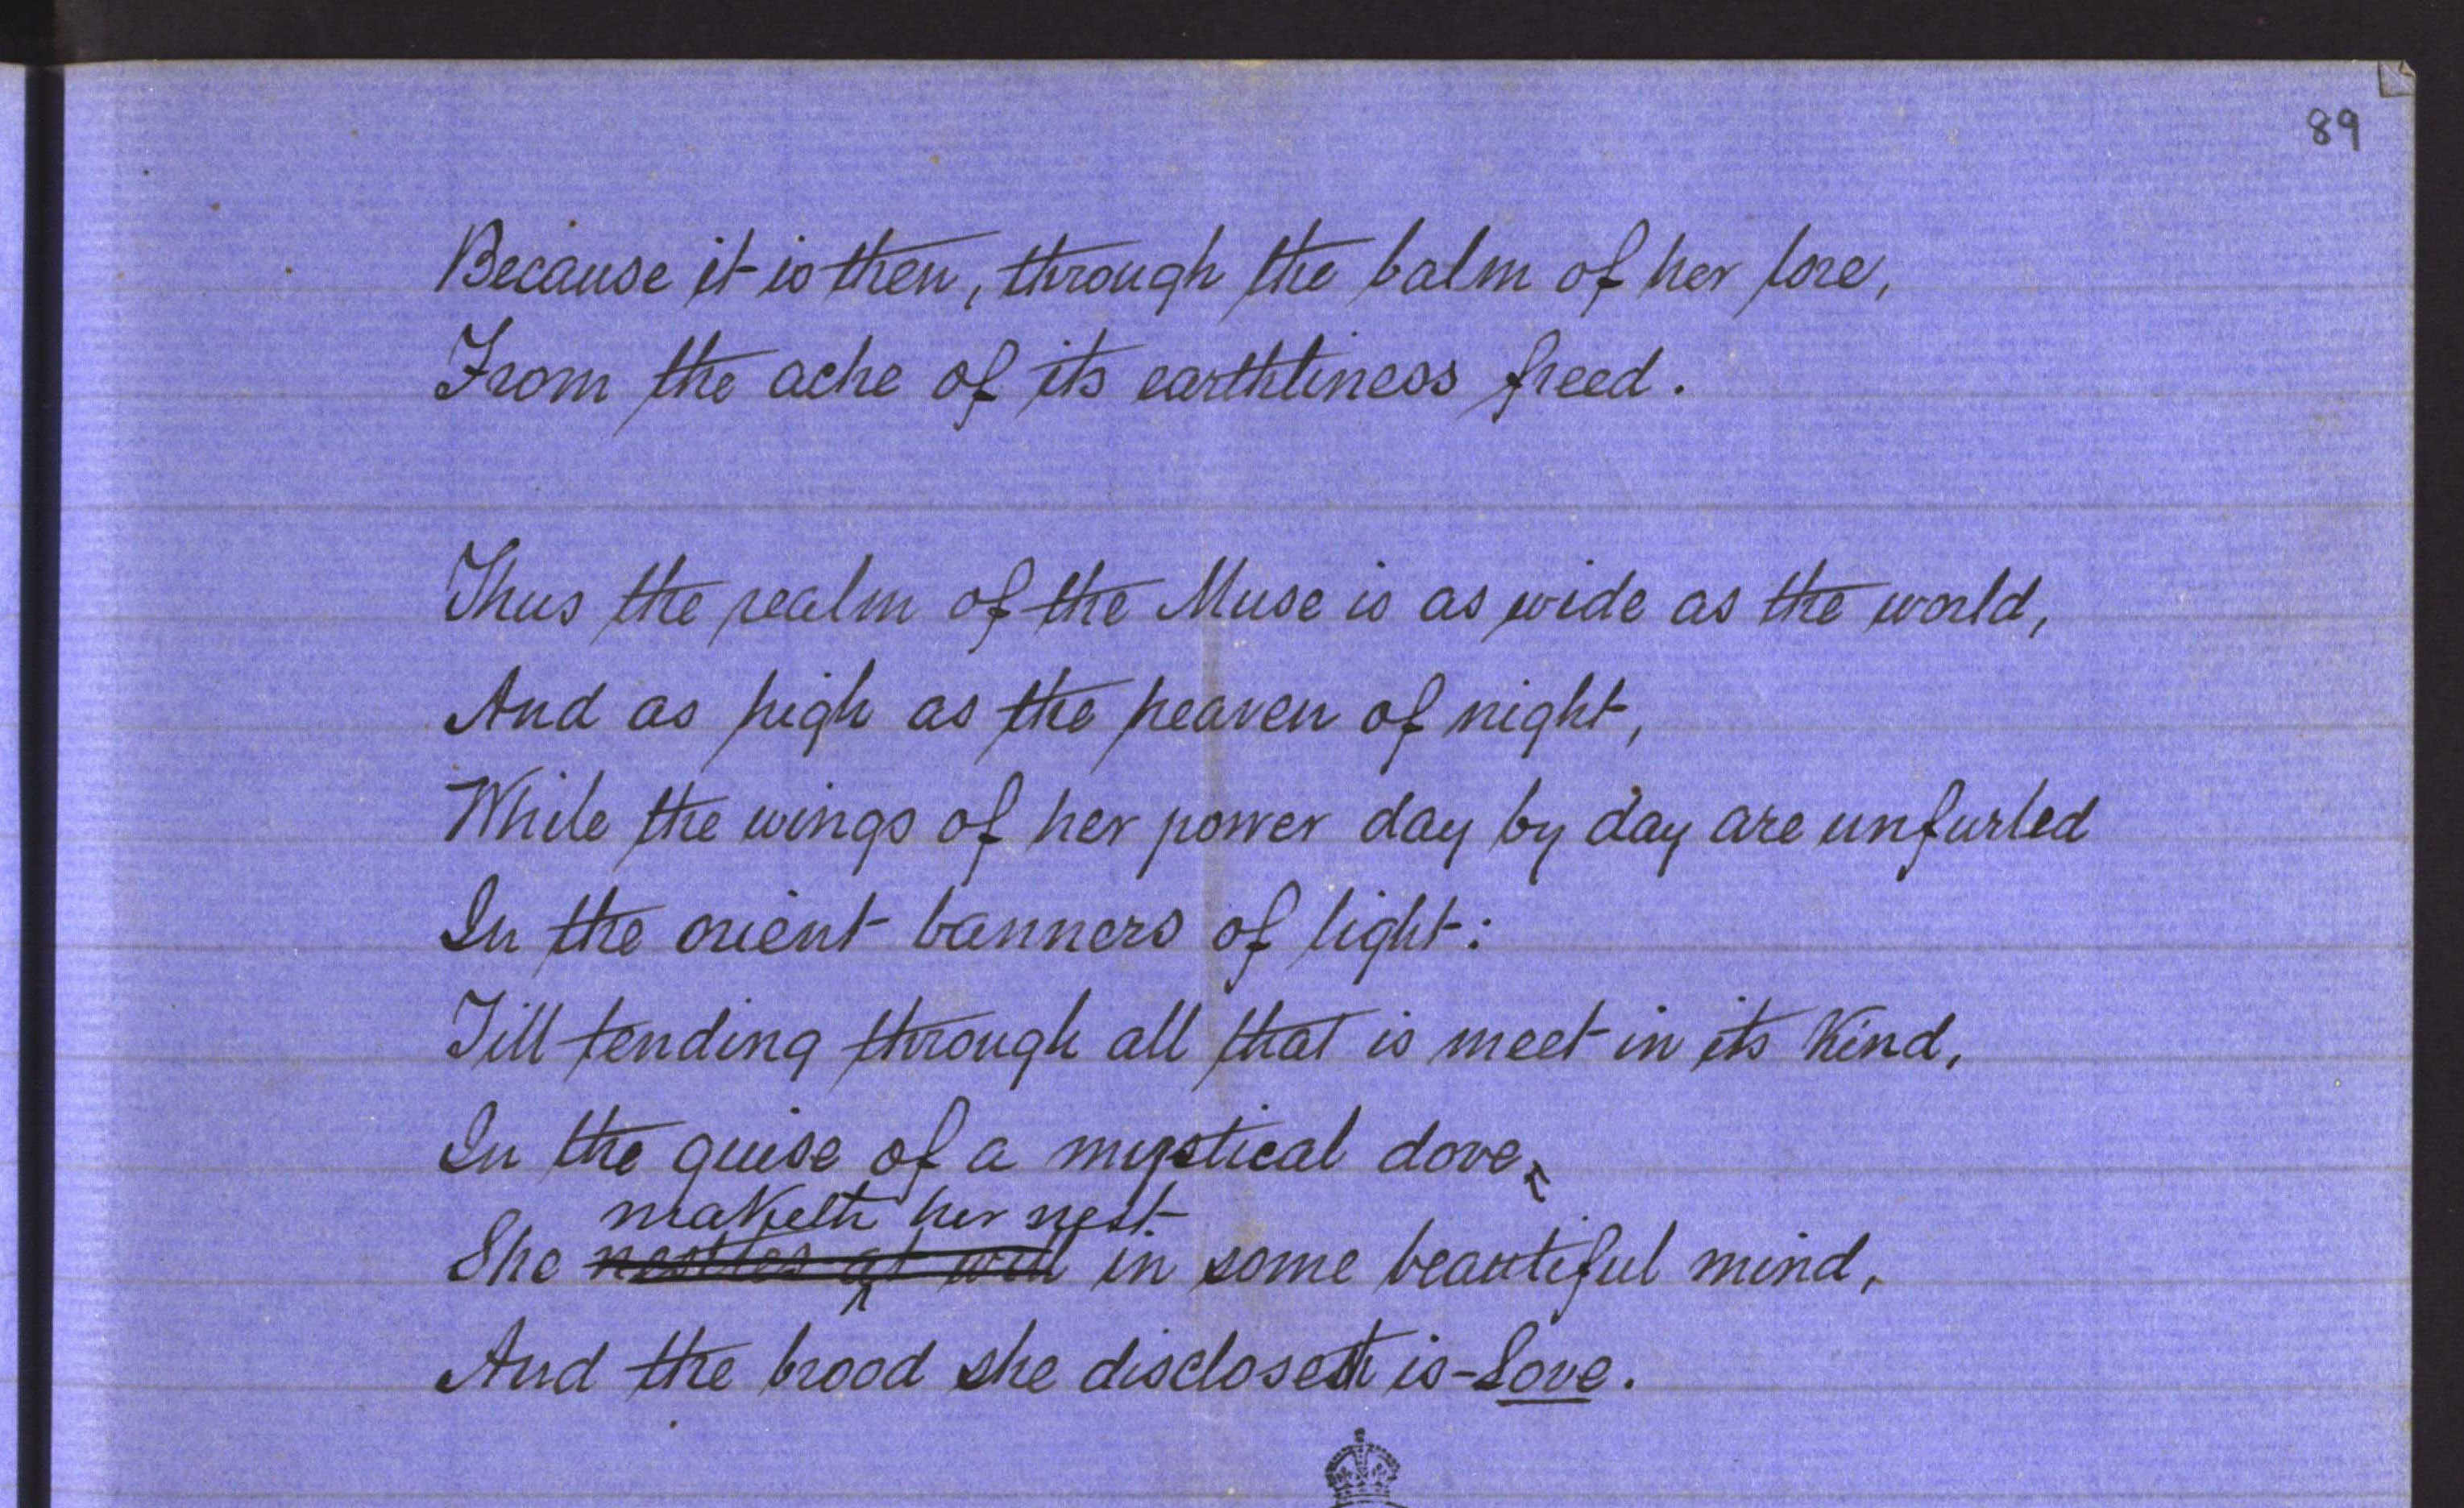 89
Because it is then, through the balm of her lore,
From the ache of its earthliness freed.
Thus the realm of the Muse is as wide as the world,
And as high as the heaven of night,
While the wings of her power day by day are unfurled
In the orient banners of light:
Till tending through all that is meet in its kind,
In the guise of a mystical dove,
maketh her nest
She nestles at will in some beautiful mind,
And the brood she discloseth is - Love.